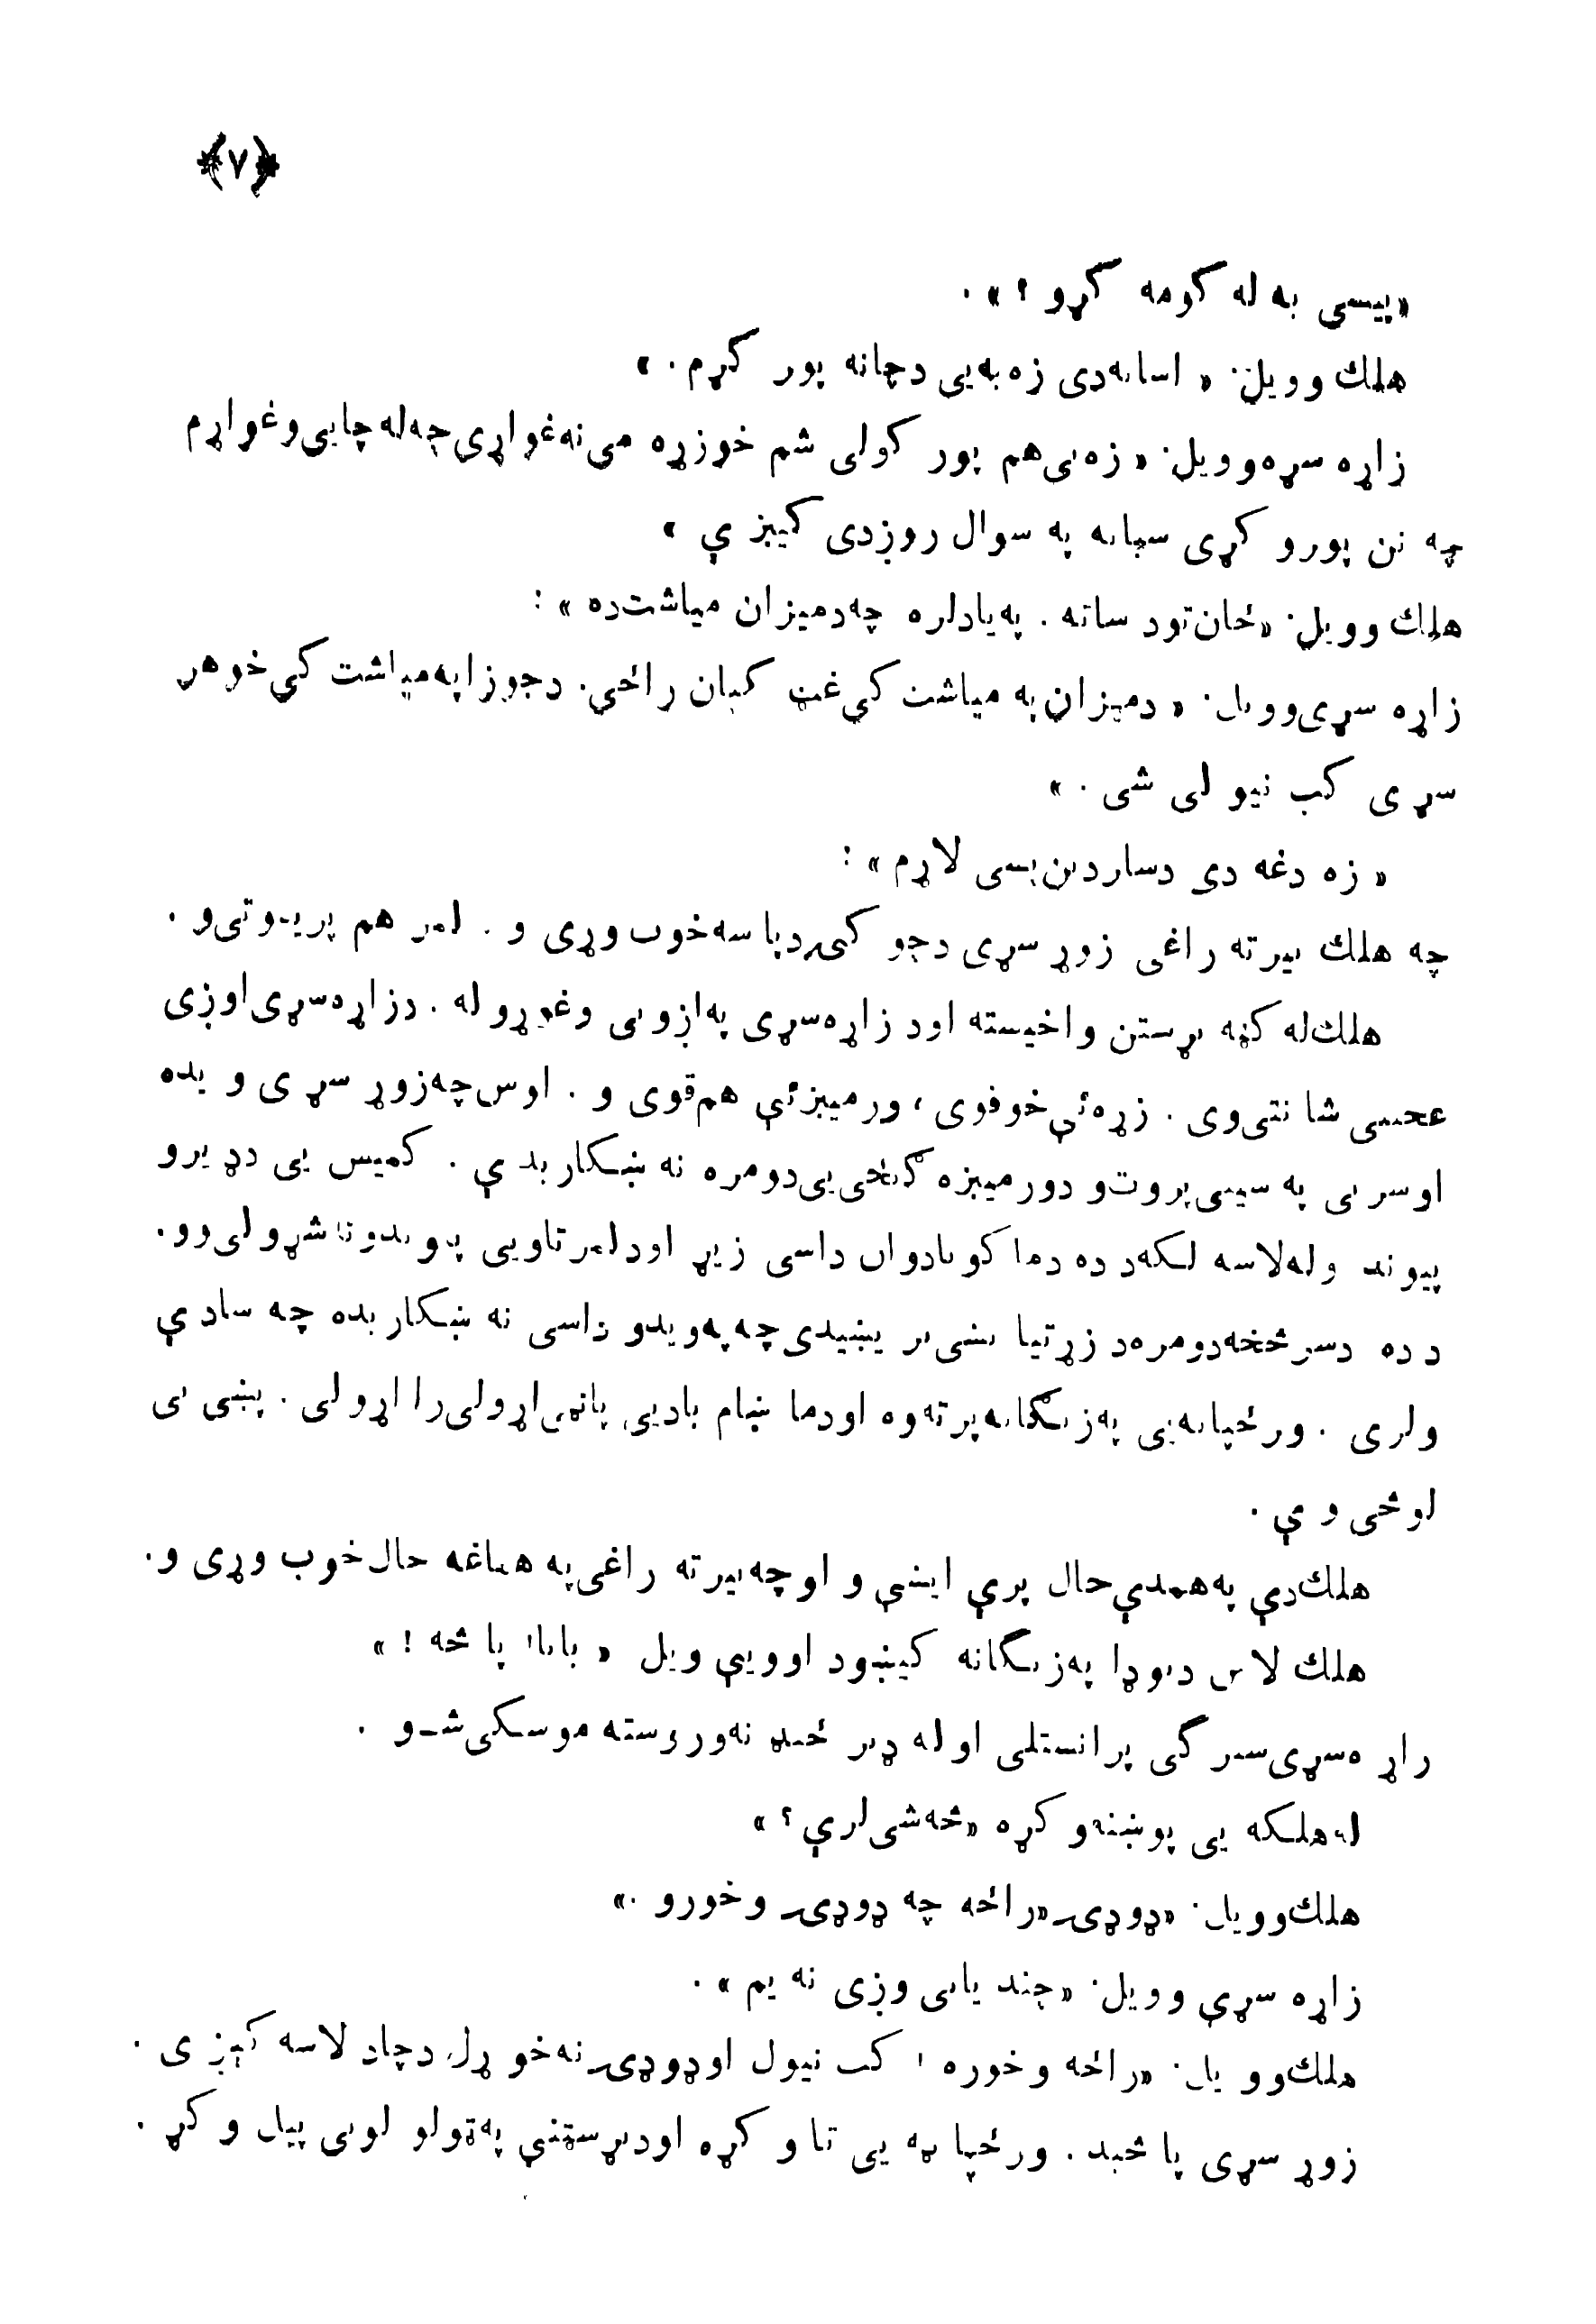 ﴿۷﴾
«پیسی به له کومه کړو ؟» .
هلك وویل: « اسانه دی زه به یی دچانه پور کړم . »
زاړه سړه وویل: « زه یی هم پور کولی شم خو زړه می نه غواړی چه له چا یی وغواړم
چه نن پور و کړی سبا به په سوال روژدی کیږ ې »
هلك وویل: «ځان تود ساته . په یاد لره چه دمیزان میاشت ده » :
زاړه سړی وویل: « دمیزان په میاشت کی غټ کبان راځی. دجوزا په میاشت کی خو هر
سړ ی کب نیو لی شی . »
« زه دغه دی دساردین پسی لاړم » :
چه هلك بیرته راغی زوړ سړی دجو کۍ دپا سه خوب وړی و . لمر هم پریوتی و .
هلك له کټه بړستن واخیسته اود زاړه سړی په اوږو یی وغوړوله . دزاړه سړی اوږی
عجیبی شا نتی وی . زړه ئې خو قوی ، ورمیږ ئې هم قوی و . اوس چه زوړ سړ ی و یده
اوسر یی په سینی پروت و دورمیږه ګنځی یی دومره نه ښکاریدې . کمیس یی دډ یرو
پیوند و له لاسه لکه د ده دما کو بادوان داسی زیړ اود لمر تاو یی پیوندونه شړولی وو.
د ده دسر څخه دومره د زړتیا نښی یریښیدی چه په ویدو داسی نه ښکاریده چه سادې
ولری . ورځپاڼه یی په زنګانه پرته وه اودما ښام بادیی پاڼی اړولی را اړولی . پښی یی
لوڅی و ې .
هلك دې په همدې حال پرې ایښې و اوچه بیرته راغی په هماغه حال خوب وړی و.
هلك لاس دبوډا په زنګانه کیښود اوویې ویل « بابا! پا څه ! »
زاړ ه سړی سترګی پرانستلی اوله ډیر ځنډ نه وروسته موسکی شو .
له هلکه یی پوښتنه و کړه «څه شی لرې ؟ »
هلك وویل: «ډوډۍ «راځه چه ډوډۍ وخورو .»
زاړه سړې وویل: «چند یانی وږی نه یم » .
هلك وو یل: «راځه وخوره ! کب نیول اوډوډۍ نه خو ړل دچاد لاسه کیږ ی .
زوړ سړی پا څېد . ورځپا ڼه یی تا و کړه اودبړستنې په ټولو لو یی پیل و کړ .